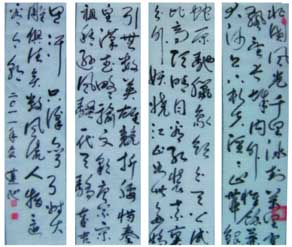 北国风光千里冰封万里雪
飘望长城内外惟余莽莽
大河上下顿失滔滔山舞银
蛇原驰蜡象欲与天公试
比高须晴日看红装素裹
分外妖娆江山如此多娇
引无数英雄竞折腰惜秦
皇汉武略输文采唐宗宋
祖稍逊风骚一代天骄成吉
思汗只识弯弓射大
雕俱往矣数风流人物还
看今朝二〇一一年